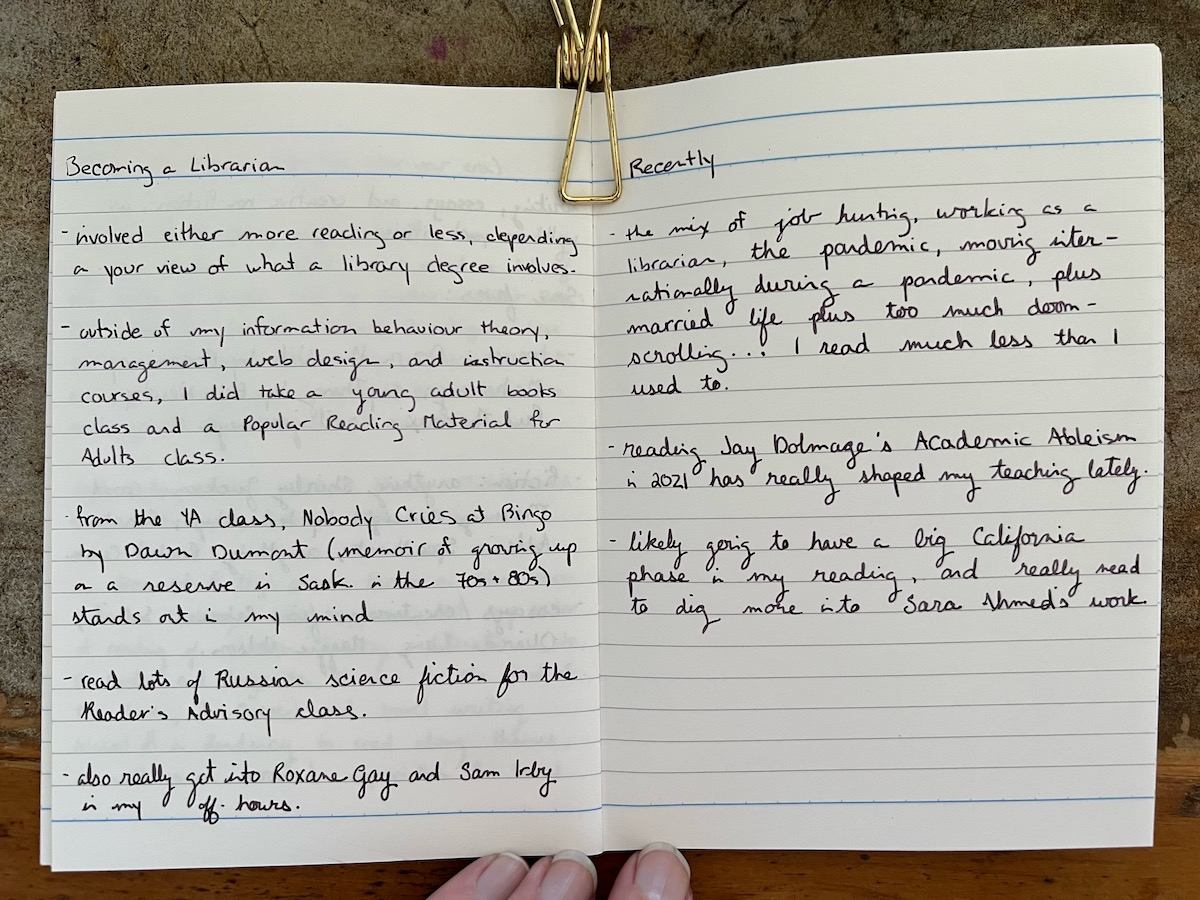 Becoming a Librarian
- involved either more reading or less, depending
on your view of what a library degree involves.
- outside of my information behaviour theory,
management, web design, and instruction
courses, I did take a young adult books
class and a Popular Reading Material for
Adults class.
- from the YA class, Nobody Cries at Bingo
by Dawn Dumont (memoir of growing up
on a reserve in Sask. in the 70s + 80s)
stands out in my mind
- read lots of Russian science fiction for the
Reader's Advisory class.
- also really got into Roxane Gay and Sam Irby
in my off-hours.
Recently
- the mix of job hunting, working as a
librarian, the pandemic, moving inter-
nationally during a pandemic, plus
married life plus too much doom-
scrolling... I read much less than I
used to.
- reading Jay Dolmage's Academic Ableism
in 2021 has really shaped my teaching lately.
- likely going to have a big California
phase in my reading, and really need
to dig more into Sara Ahmed's work.